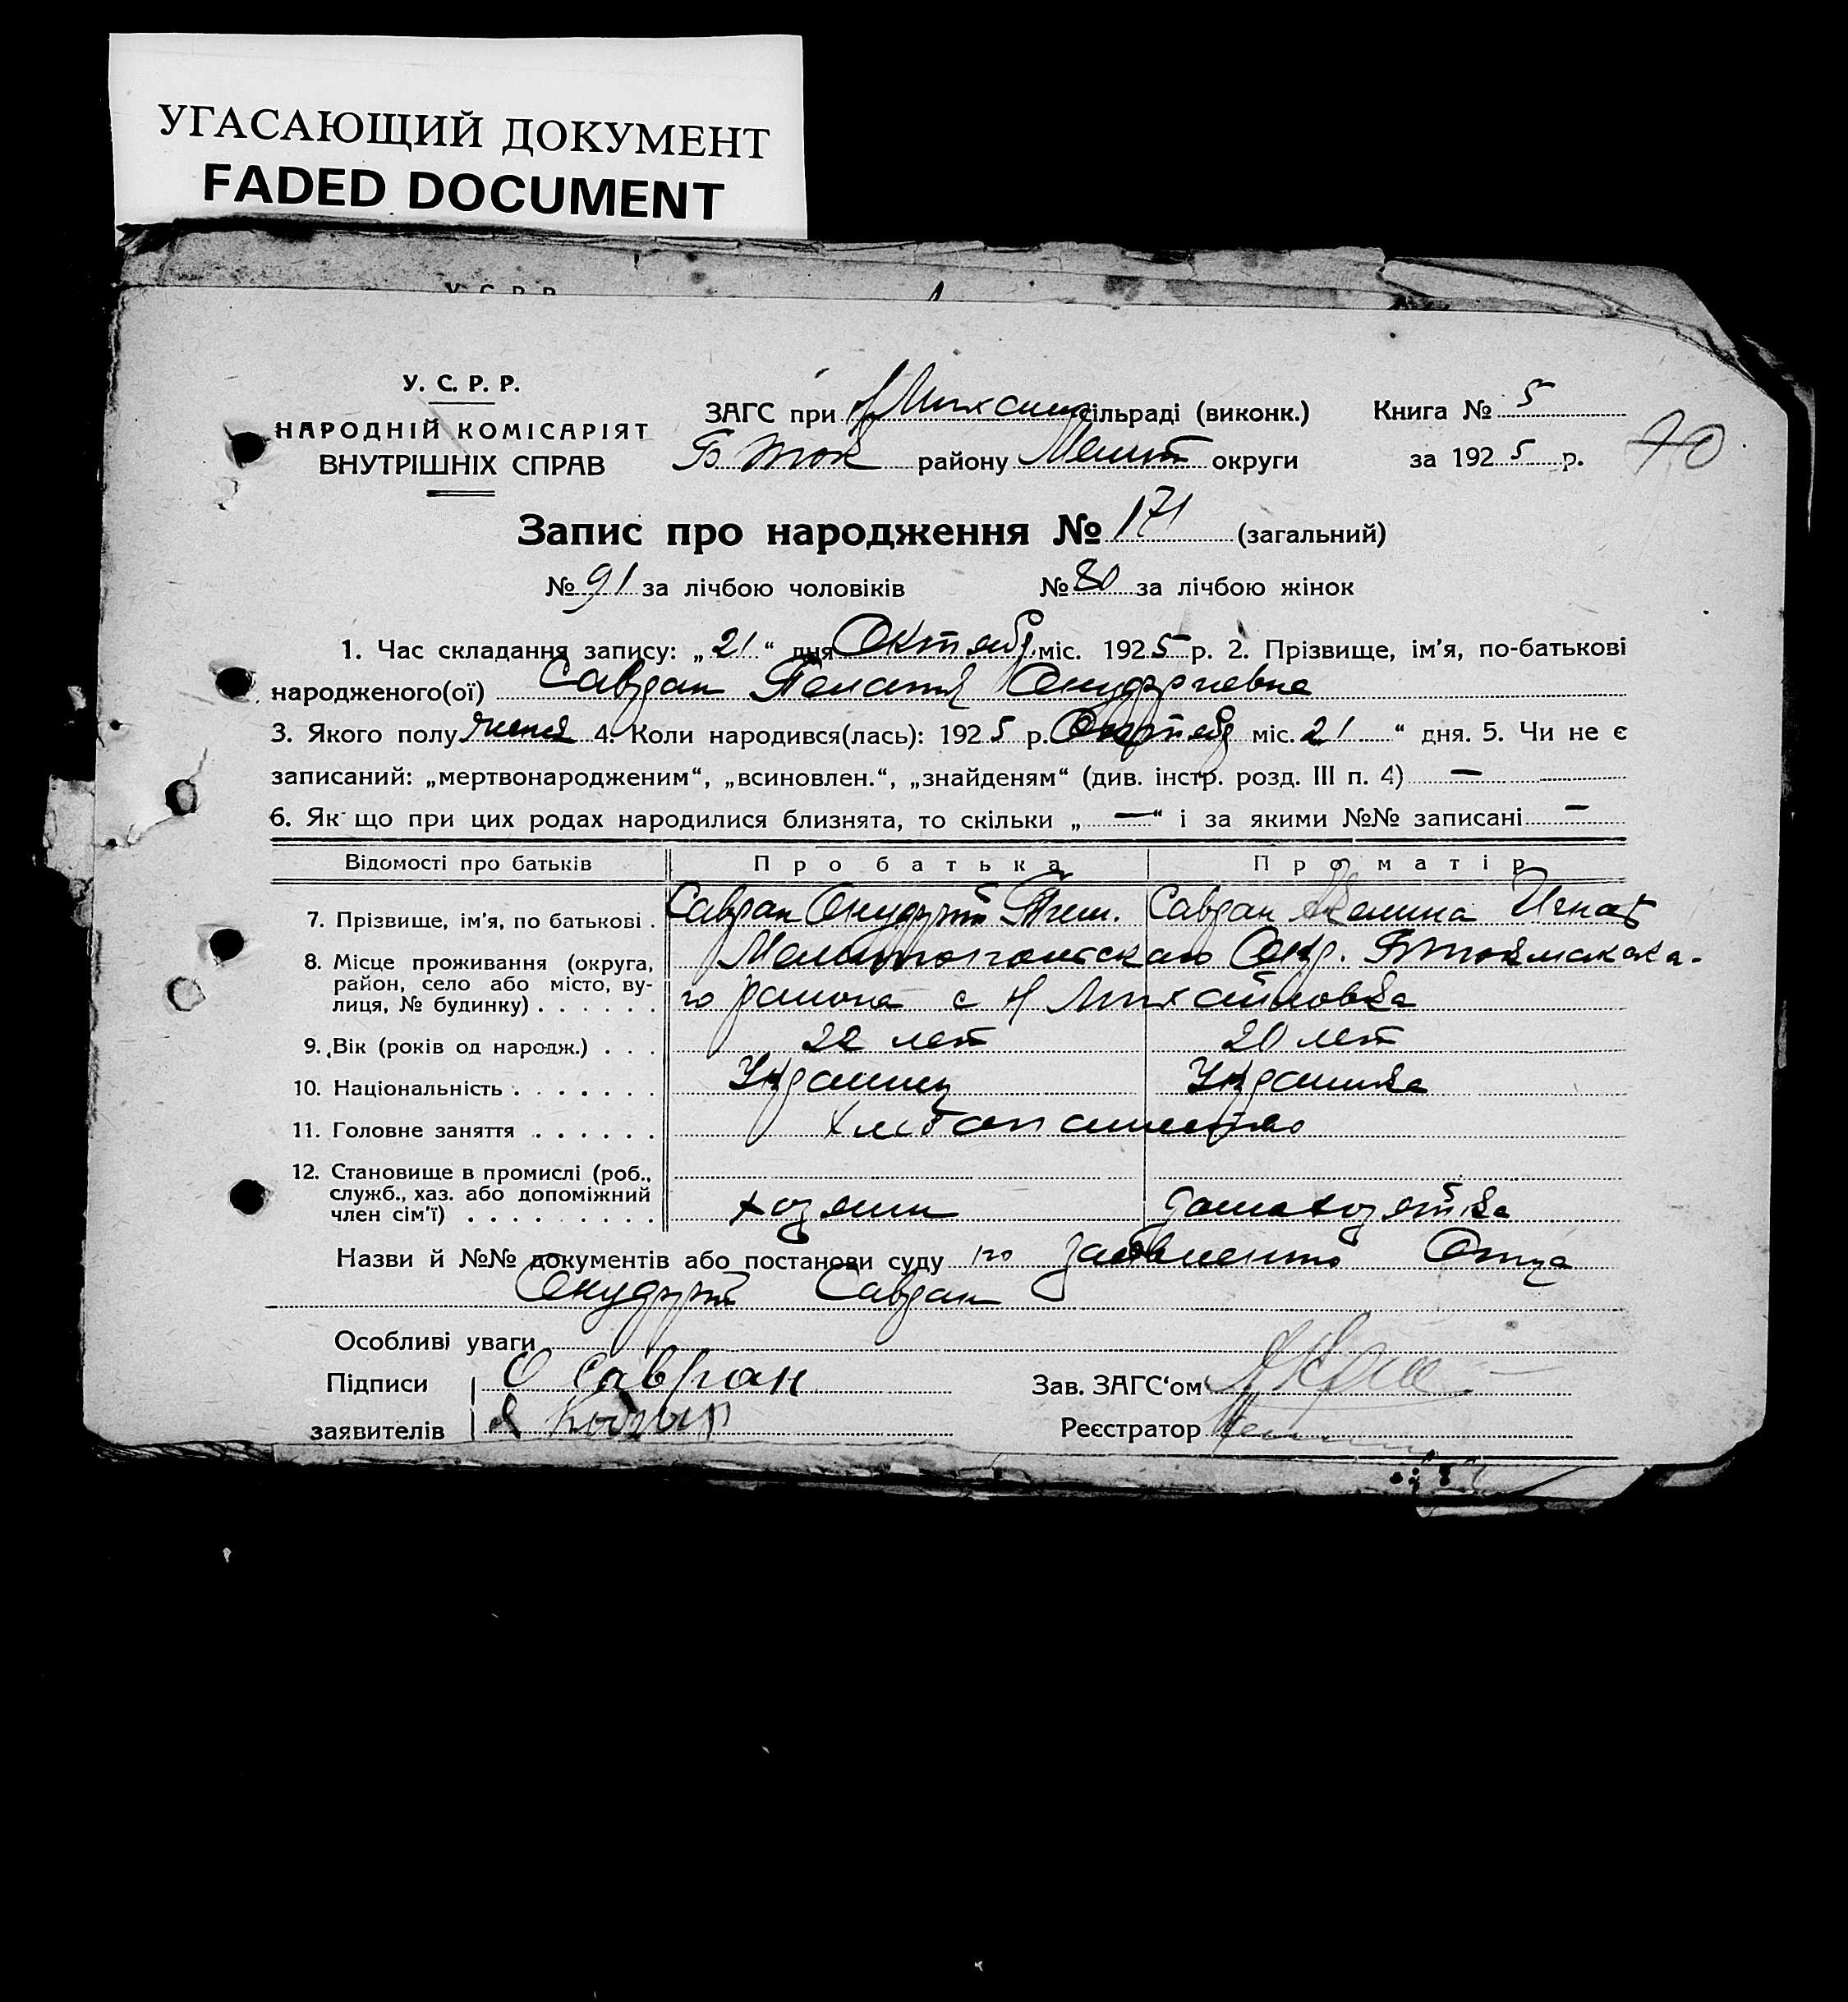 УГАСАЮЩИЙ ДОКУМЕНТ
FADED DOCUMENT
У. С. Р. Р.
У. С. Р. Р.
НАРОДНІЙ КОМІСАРІЯТ
ВНУТРІШНІХ СПРАВ
ЗАГС при Н Михайл сільраді (виконк.) Книга № 5
Б Ток району Мелит округи за 1925 р.
70
Запис про народження № 171 (загальний)
№ 91 за лічбою чоловіків № 80 за лічбою жінок
1. Час складання запису: „21“ дня Октябр міс. 1925 р. 2. Прізвище, ім'я, по-батькові
народженого(ої) Савран Пелагия Онуфриевна
3. Якого полу 4. Коли народився(лась): 1925 р. Октябр міс. 21 “ дня. 5. Чи не є
записаний: „мертвонародженим“, „всиновлен.“, „знайденям“ (див. інстр. розд. III п. 4) —
6. Як що при цих родах народилися близнята, то скільки „ — “ і за якими №№ записані —
Відомості про батьків Про батька Про матір
7. Прізвище, ім'я, по батькові . Савран Онуфрий Тим. Савран Игнат
8. Місце проживання (округа, район, село або місто, вулиця, № будинку) . . . . . . Мелитопольскаго Окр. Б Токмакска-
го района с Н Михайловка
9. Вік (років од народж.) . . . 22 лет 20 лет
10. Національність . . . . . . . Украинец Украинка
11. Головне заняття . . . . . . Хлебопашество
12. Становище в промислі (роб.,
служб., хаз. або допоміжний
член сім'ї) . . . . . . . . . хозяин домахозяйка
Назви й №№ документів або постанови суду по заявлению Отца
Онуфрий Савран
Особливі уваги
Підписи О Савран Зав. ЗАГС'ом
заявителів Реєстратор